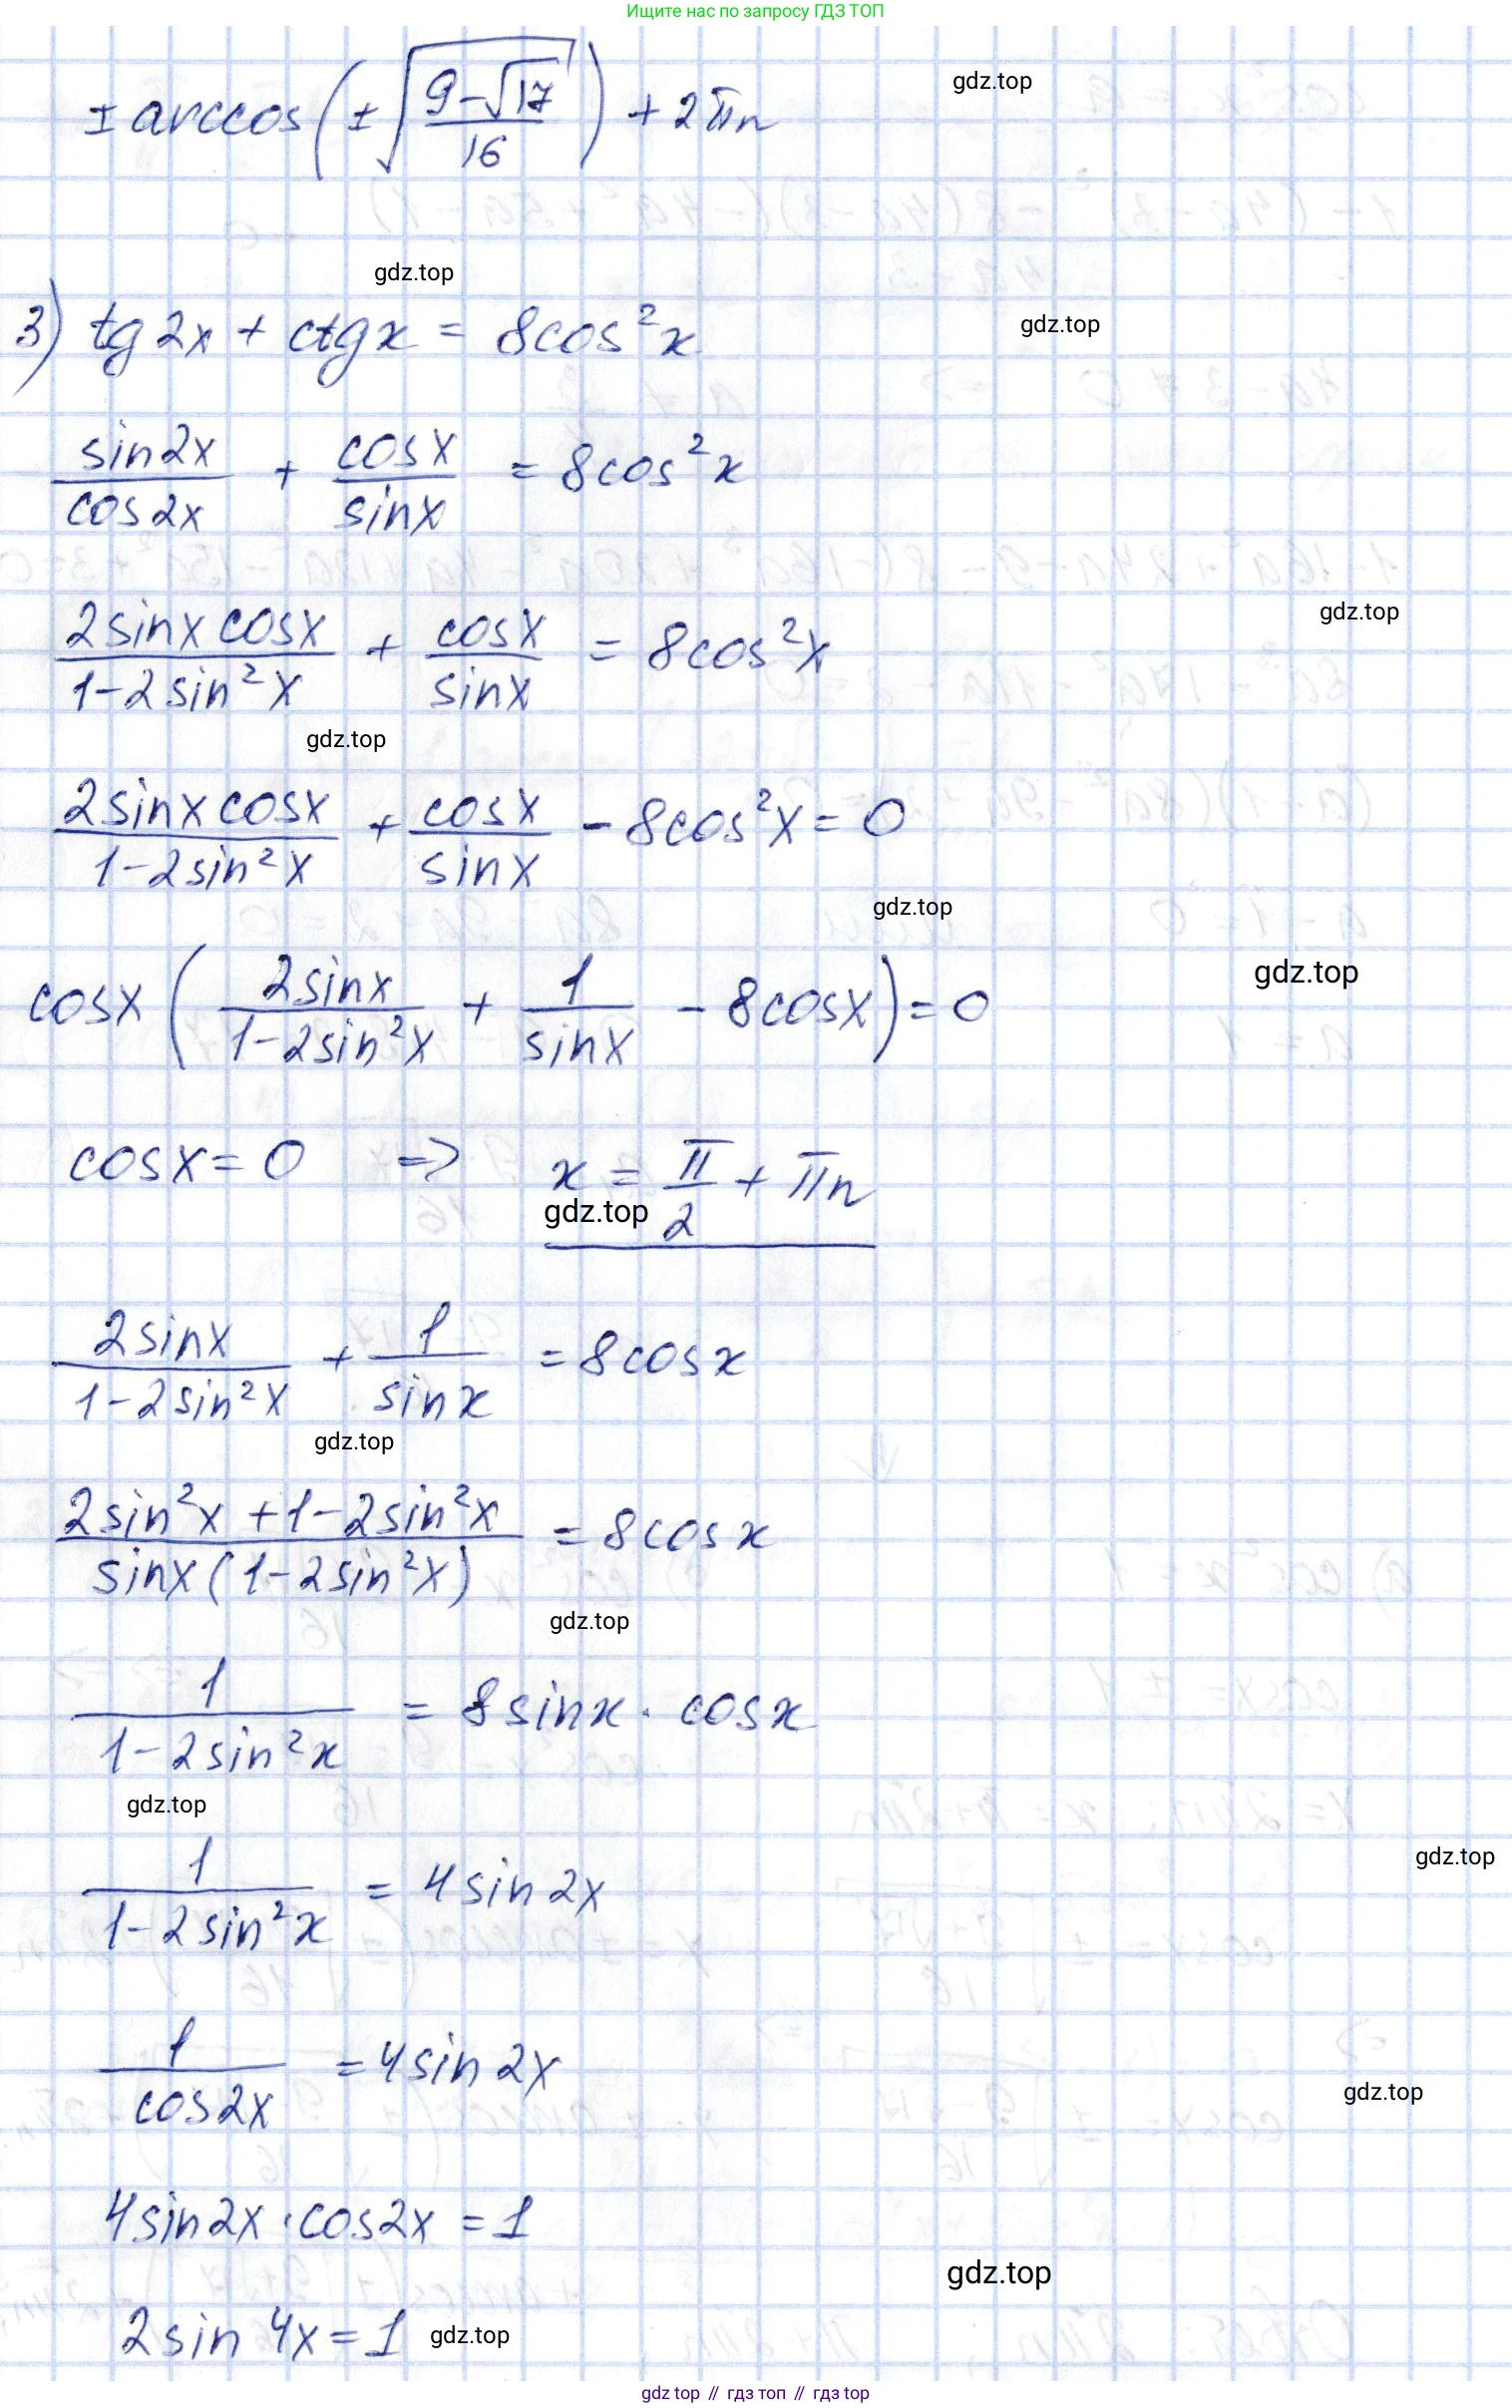 Ищите нас по запросу ГДЗ ТОП
± arccos(±√((9-√17)/16)) + 2πn
gdz.top
gdz.top
3) tg2x + ctgx = 8cos²x
gdz.top
sin2x/cos2x + cosx/sinx = 8cos²x
gdz.top
2sinx cosx/(1-2sin²x) + cosx/sinx = 8cos²x
gdz.top
2sinx cosx/(1-2sin²x) + cosx/sinx - 8cos²x = 0
gdz.top
gdz.top
cosx (2sinx/(1-2sin²x) + 1/sinx - 8cosx) = 0
cosx = 0 => x = π/2 + πn
gdz.top
2sinx/(1-2sin²x) + 1/sinx = 8cosx
gdz.top
(2sin²x + 1-2sin²x)/(sinx(1-2sin²x)) = 8cosx
gdz.top
1/(1-2sin²x) = 8sinx · cosx
gdz.top
gdz.top
1/(1-2sin²x) = 4sin2x
1/cos2x = 4sin2x
gdz.top
4sin2x · cos2x = 1
gdz.top
2sin4x = 1
gdz.top
gdz top // гдз топ // gdz top